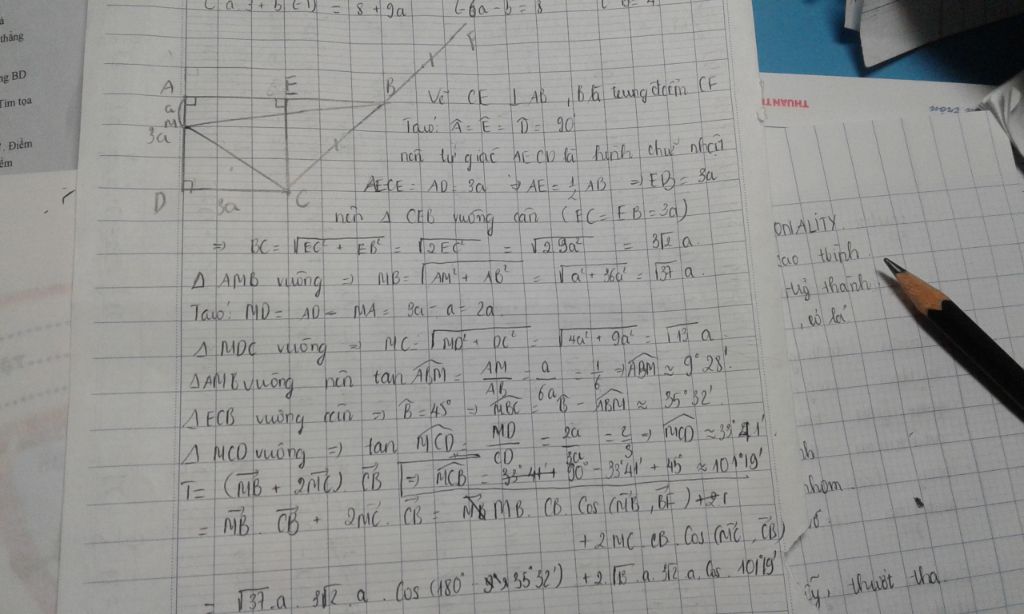 { a . 3 + b (-1) = 8 + 9a
{ -6a - b = 8
thẳng
ng BD
Tìm tọa
Điểm
A
E
B
F
a
M
3a
D
3a
C
Vẽ CE ⊥ AB , B là trung điểm CF
Ta có: Â = Ê = D̂ = 90
nên tứ giác AECD là hình chữ nhật
CE = AD = 3a ⇒ AE = 1/2 AB ⇒ EB = 3a
nên Δ CEB vuông cân (EC = EB = 3a)
⇒ BC = √(EC² + EB²) = √(2EC²) = √(2.9a²) = 3√2 a.
Δ AMB vuông ⇒ MB = √(AM² + AB²) = √(a² + 36a²) = √37 a.
Ta có: MD = AD - MA = 3a - a = 2a
Δ MDC vuông ⇒ MC = √(MD² + DC²) = √(4a² + 9a²) = √13 a
ΔAMB vuông nên tan ABM = AM/AB = a/6a = 1/6 ⇒ ABM ≈ 9°28'.
ΔECB vuông cân ⇒ B̂ = 45° ⇒ MBC = B̂ - ABM ≈ 35°32'
Δ MCD vuông ⇒ tan MCD = MD/CD = 2a/3a = 2/3 ⇒ MCD ≈ 33°41'
T = (MB + 2MC) CB ⇒ MCB = 90° - 33°41' + 45° ≈ 101°19'
= MB . CB + 2MC . CB = MB . CB . Cos (MB, BF)
+ 2 MC . CB . Cos (MC, CB)
= √37 . a . 3√2 . a . Cos (180° - 35°32') + 2 √13 . a . 3√2 . a . Cos 101°19'
THUẬN TI
ONALITY
thịnh
thành
, có lá
nhóm
, thướt tha